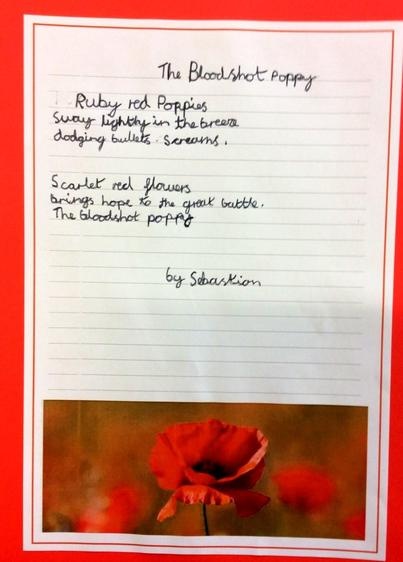 The Bloodshot Poppy
Ruby red Poppies
Sway lightly in the breeze
dodging bullets. Screams.
Scarlet red flowers
brings hope to the great battle.
The bloodshot poppy
by Sebastion